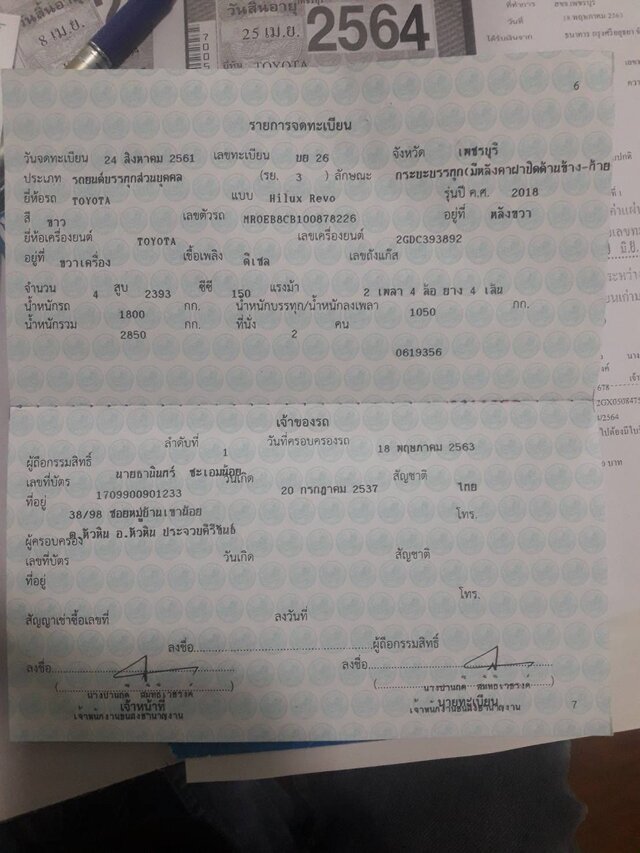 วันสิ้นอายุ
8 เม.ย.
วันสิ้นอายุ
25 เม.ย.
2564
TOYOTA
ที่ทำการ
วันที่ 18 พฤษภาคม 2563
ได้รับเงินจาก ธนาคาร กรุงศรีอยุธยา
6
รายการจดทะเบียน
วันจดทะเบียน 24 สิงหาคม 2561 เลขทะเบียน ขย 26 จังหวัด เพชรบุรี
ประเภท รถยนต์บรรทุกส่วนบุคคล (รย. 3 ) ลักษณะ กระบะบรรทุก(มีหลังคาฝาปิดด้านข้าง-ท้าย
ยี่ห้อรถ TOYOTA แบบ Hilux Revo รุ่นปี ค.ศ. 2018
สี ขาว เลขตัวรถ MR0EB8CB100878226 อยู่ที่ หลังขวา
ยี่ห้อเครื่องยนต์ TOYOTA เลขเครื่องยนต์ 2GDC393892
อยู่ที่ ขวาเครื่อง เชื้อเพลิง ดีเซล เลขถังแก๊ส
จำนวน 4 สูบ 2393 ซีซี 150 แรงม้า 2 เพลา 4 ล้อ ยาง 4 เส้น
น้ำหนักรถ 1800 กก. น้ำหนักบรรทุก/น้ำหนักลงเพลา 1050 กก.
น้ำหนักรวม 2850 กก. ที่นั่ง 2 คน
0619356
เจ้าของรถ
ลำดับที่ 1 วันที่ครอบครองรถ 18 พฤษภาคม 2563
ผู้ถือกรรมสิทธิ์ นายธานินทร์ ชะเอมน้อย
เลขที่บัตร 1709900901233 วันเกิด 20 กรกฎาคม 2537 สัญชาติ ไทย
ที่อยู่ 38/98 ซอยหมู่บ้านเขาน้อย โทร.
ต.หัวหิน อ.หัวหิน ประจวบคีรีขันธ์
ผู้ครอบครอง
เลขที่บัตร วันเกิด สัญชาติ
ที่อยู่
โทร.
สัญญาเช่าซื้อเลขที่ ลงวันที่
ลงชื่อ ผู้ถือกรรมสิทธิ์
ลงชื่อ ลงชื่อ
เจ้าหน้าที่ นายทะเบียน
เจ้าพนักงานขนส่งชำนาญงาน เจ้าพนักงานขนส่งชำนาญงาน
7